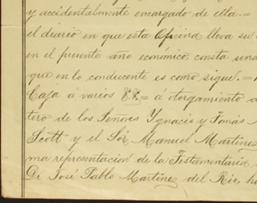 y accidentalmente encargado de ella.=
el diario en que esta Oficina lleva su
en el presente año económico consta una
que en lo conducente es como sigue:=
Caja á varios = á otorgamiento
tero de los Señores Ygnacio y Tomás
Scott y el Sór Manuel Martinez
ma representacion de la Testamentaria
Dn José Pablo Martinez del Rio,